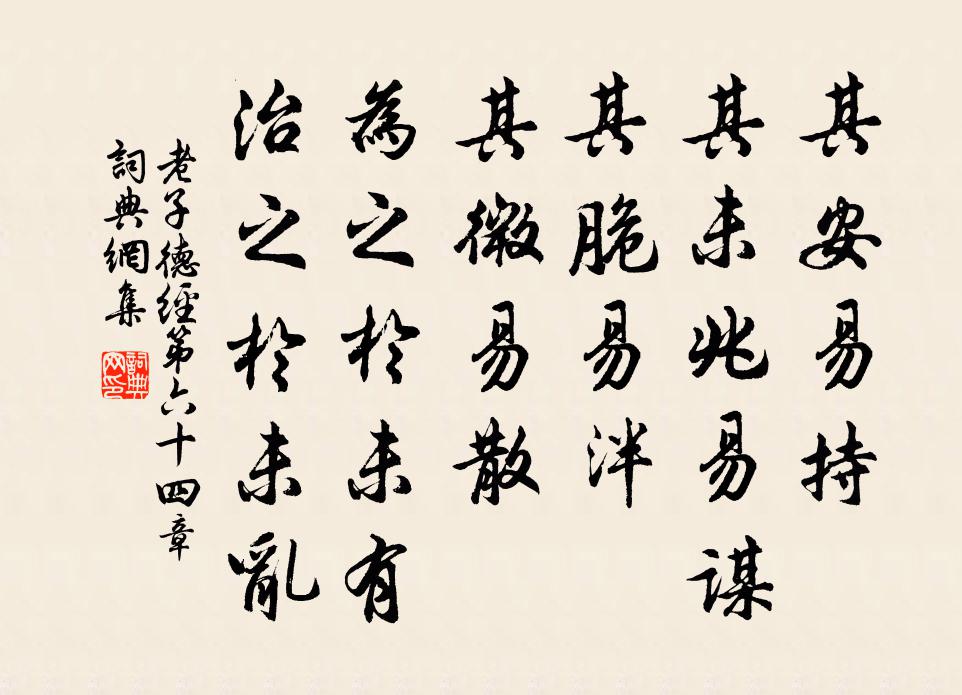 其安易持
其未兆易謀
其脆易泮
其微易散
為之於未有
治之於未亂
老子德經第六十四章
詞典網集
詞典网印